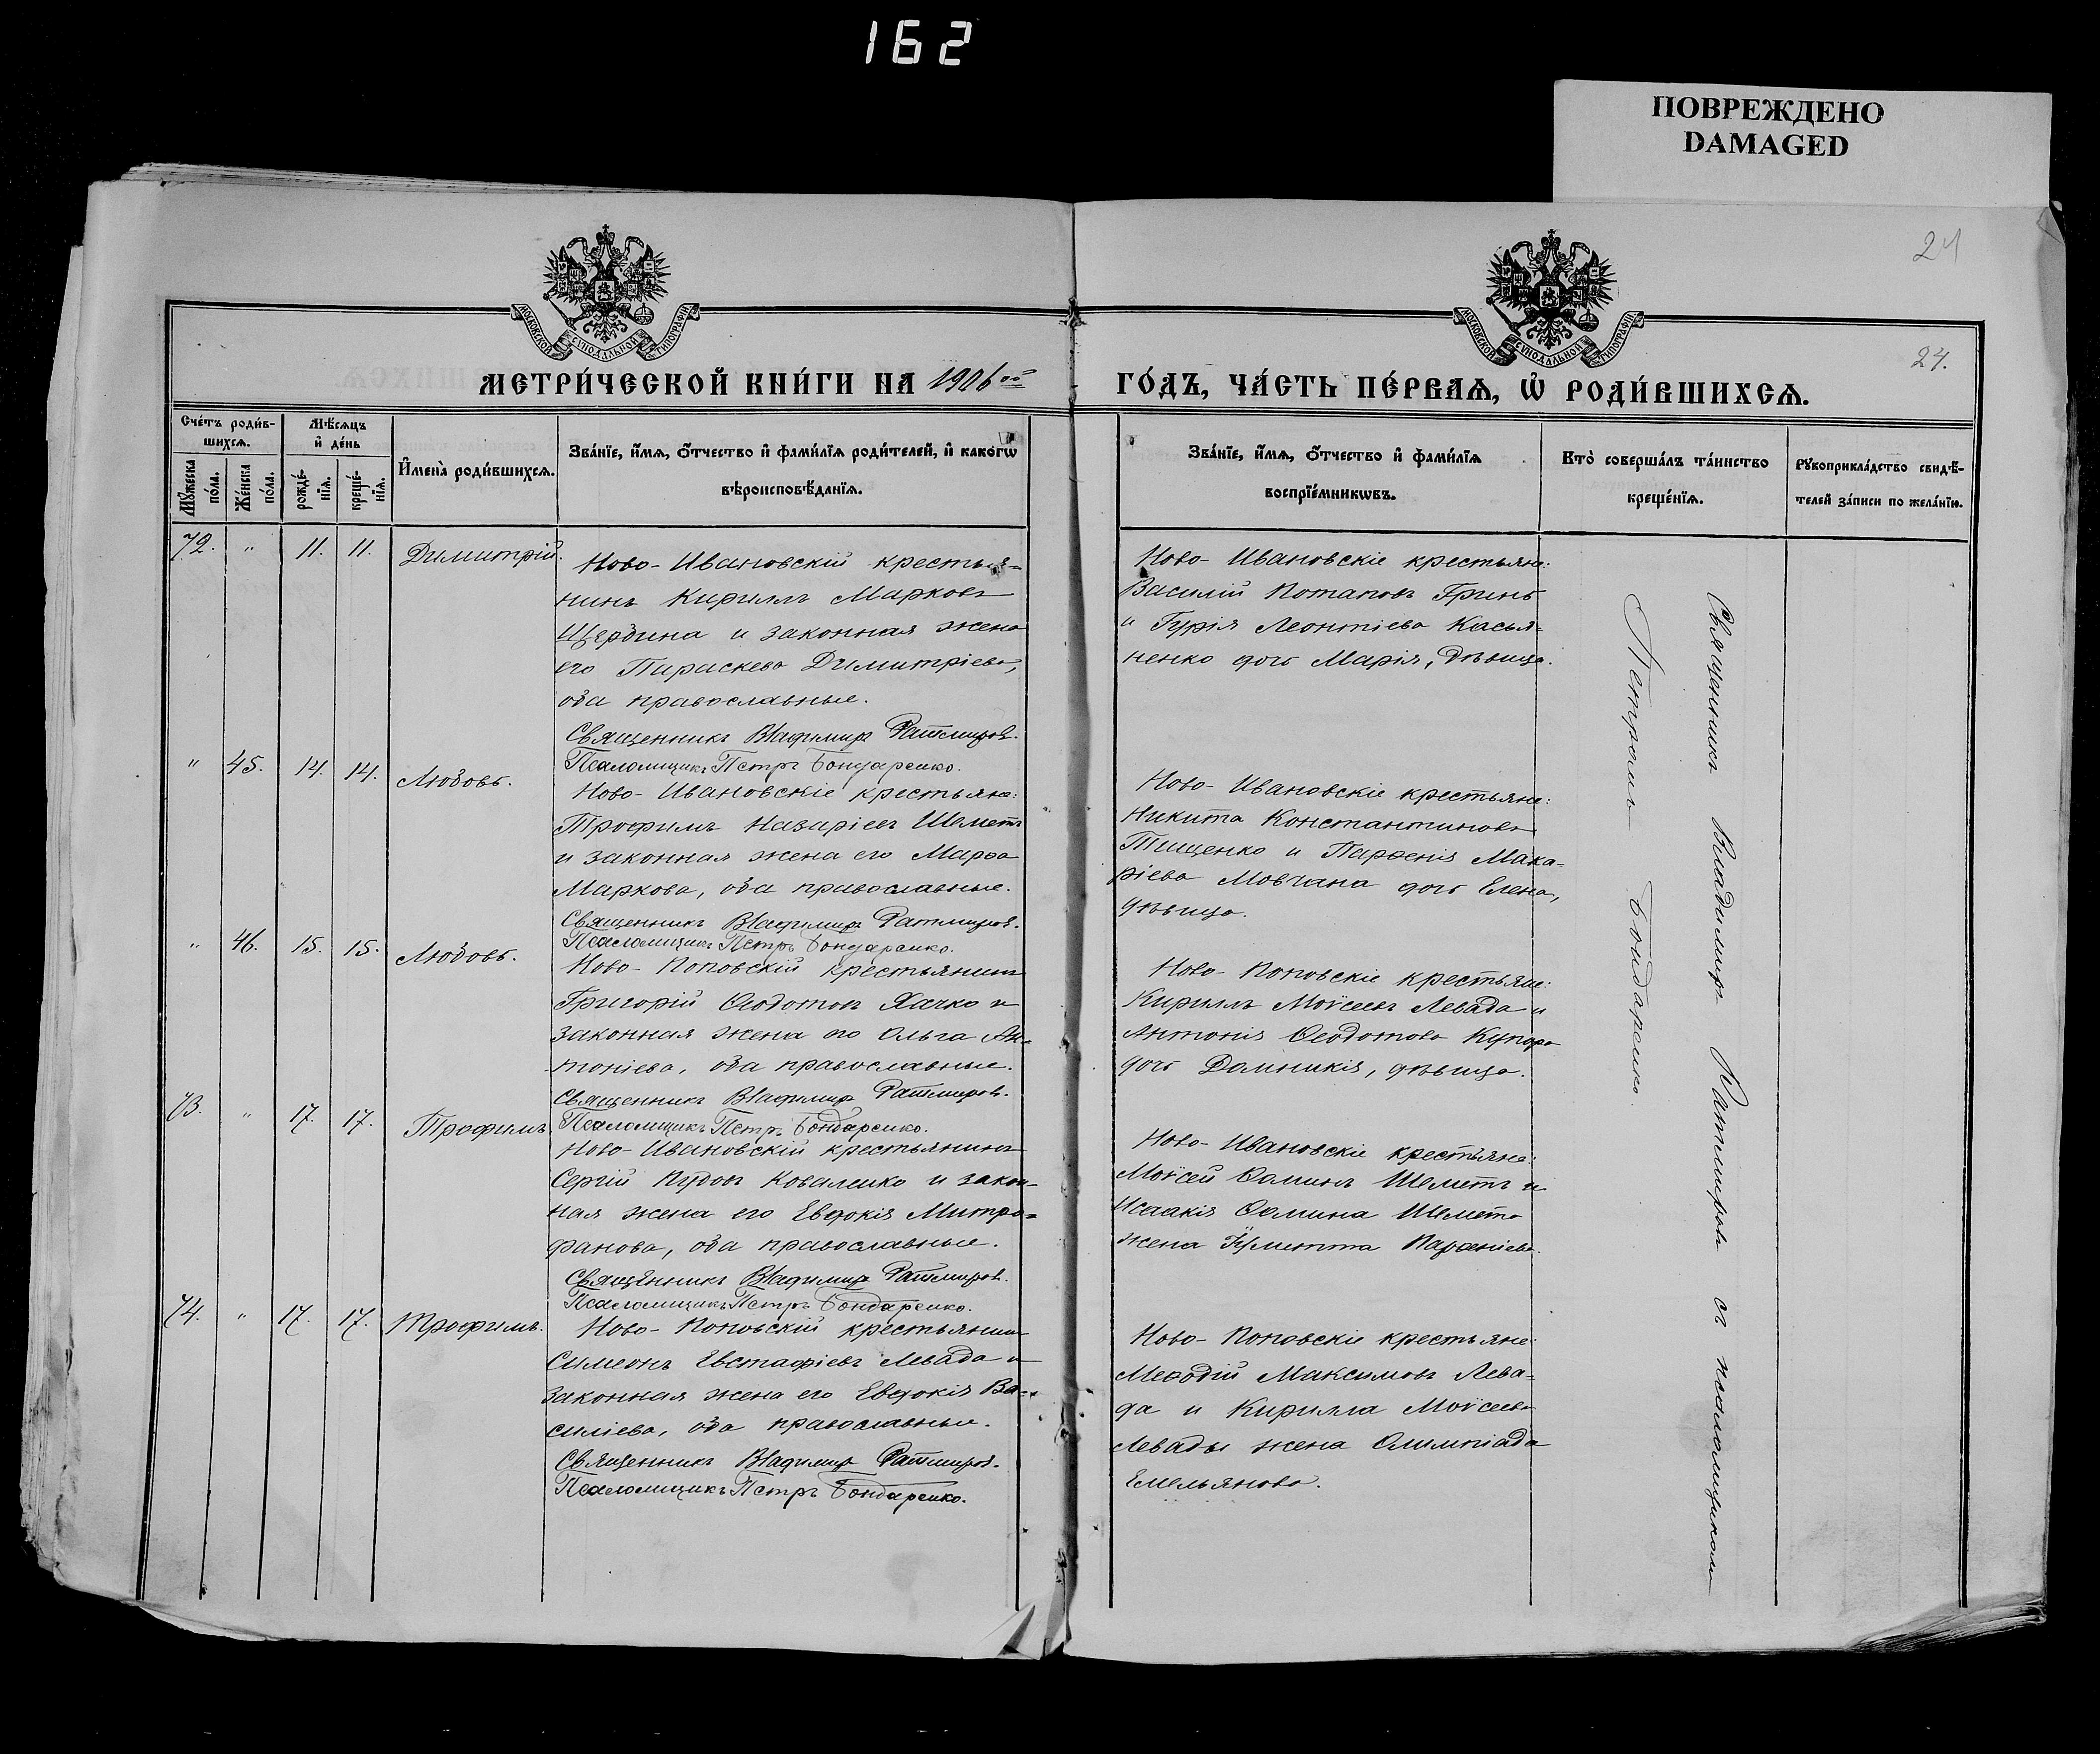 162
ПОВРЕЖДЕНО
DAMAGED
24
24.
МОСКОВСКОЙ СѴНОДАЛЬНОЙ ТИПОГРАФІИ
МОСКОВСКОЙ СѴНОДАЛЬНОЙ ТИПОГРАФІИ
МЕТРИ́ЧЕСКОЙ КНИ́ГИ НА 1906 ой
ГО́ДЪ, ЧА́СТЬ ПЕ́РВАЯ, Ѡ҆ РОДИ́ВШИХСѦ.
Сче́тъ роди́в-
шихсѧ.
Мꙋ́жеска по́ла.
Же́нска по́ла.
Мѣ́сѧцъ
и҆ де́нь
рожде́-
нїѧ.
креще́-
нїѧ.
И҆мена̀ роди́вшихсѧ.
Зва́нїе, и҆́мѧ, ѻ҆́тчество и҆ фами́лїѧ роди́телей, и҆ како́гѡ
вѣроисповѣ́данїѧ.
Зва́нїе, и҆́мѧ, ѻ҆́тчество и҆ фами́лїѧ
воспрїе́мникѡвъ.
Кто̀ соверша́лъ та́инство
креще́нїѧ.
Рꙋкоприкла́дство свидѣ́-
телей за́писи по жела́нїю.
72. " 11. 11. Димитрій.
Ново-Ивановскій крестья=
нинъ Кириллъ Марковъ
Щербина и законная жена
его Параскева Димитріева,
оба православные.
Священникъ Владимиръ Ратмировъ.
Псаломщикъ Петръ Бондаренко.
Ново-Ивановскіе крестьяне:
Василій Потаповъ Гринь
и Гурія Леонтіева Касья-
ненко дочь Марія, дѣвица.
" 45. 14. 14. Любовь.
Ново-Ивановскіе крестьяне:
Трофимъ Назаріевъ Шеметъ
и законная жена его Марѳа
Маркова, оба православные.
Священникъ Владимиръ Ратмировъ.
Псаломщикъ Петръ Бондаренко.
Ново-Ивановскіе крестьяне:
Никита Константиновъ
Тищенко и Парѳенія Мака-
ріева Мовчана дочь Елена,
дѣвица.
" 46. 15. 15. Любовь.
Ново-Поповскій крестьянинъ
Григорій Ѳеодотовъ Хачко и
законная жена его Ольга Ан-
тоніева, оба православные.
Священникъ Владимиръ Ратмировъ.
Псаломщикъ Петръ Бондаренко.
Ново-Поповскіе крестьяне:
Кириллъ Моѵсеевъ Левада и
Антонія Ѳеодотова
дочь Домникія, дѣвица.
73. " 17. 17. Трофимъ.
Ново-Ивановскій крестьянинъ
Сергій Пудовъ Коваленко и закон-
ная жена его Евдокія Митро=
фанова, оба православные.
Священникъ Владимиръ Ратмировъ.
Псаломщикъ Петръ Бондаренко.
Ново-Ивановскіе крестьяне:
Моѵсей Ѳоминъ Шеметъ и
Исаакія Ѳомина Шемета
жена Парѳеніева.
74. " 17. 17. Трофимъ.
Ново-Поповскій крестьянинъ
Симеонъ Евстафіевъ Левада и
законная жена его Евдокія Ва-
силіева, оба православные.
Священникъ Владимиръ Ратмировъ.
Псаломщикъ Петръ Бондаренко.
Ново-Поповскіе крестьяне:
Меѳодій Максимовъ Лева-
да и Кирилла Моѵсеева
Левады жена Олимпіада
Емельянова.
Священникъ Владимиръ Ратмировъ съ псаломщикомъ
Петромъ Бондаренко.